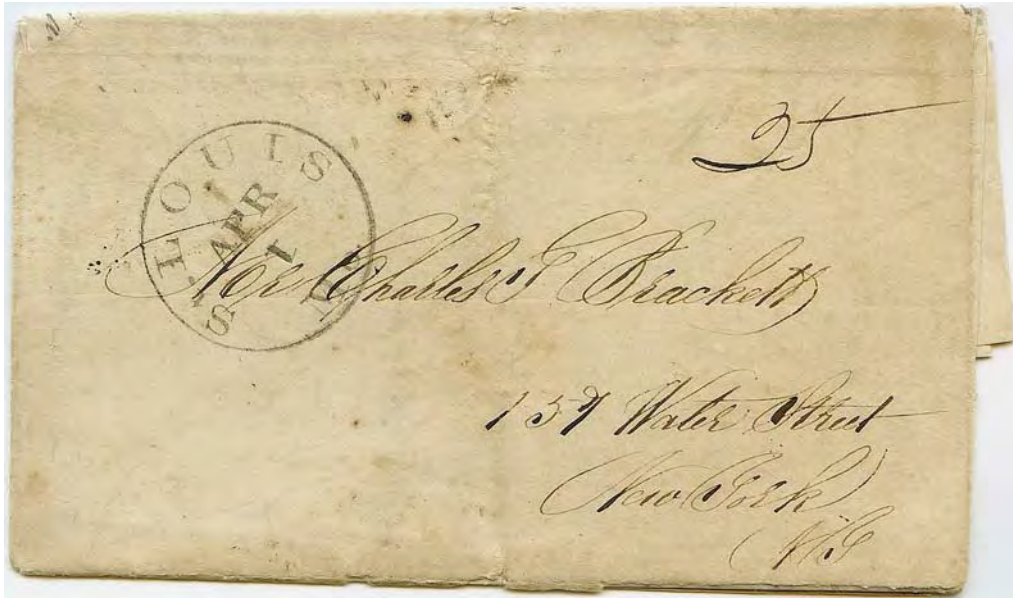 25
ST. LOUIS
APR
1
Mr Charles G Brackett
157 Water Street
New York
NY